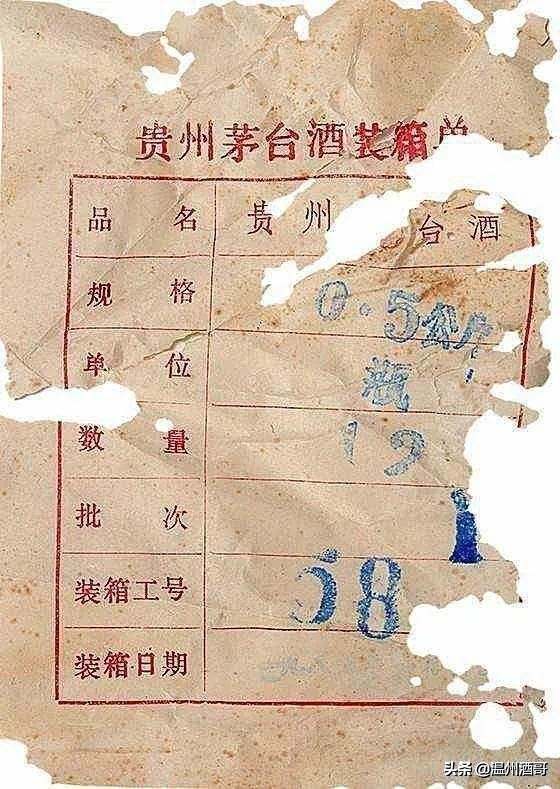 贵州茅台酒装箱单
品 名 贵 州 台 酒
规 格 0.5公斤
单 位 瓶
数 量 12
批 次 1
装箱工号 58
装箱日期
头条 @温州酒哥